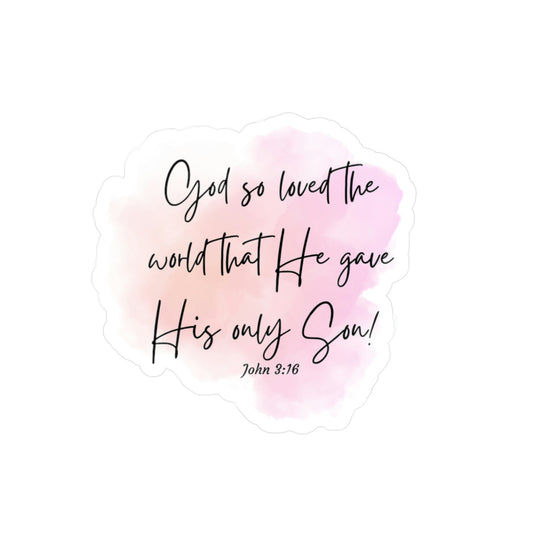 God so loved the
world that He gave
His only Son!
John 3:16